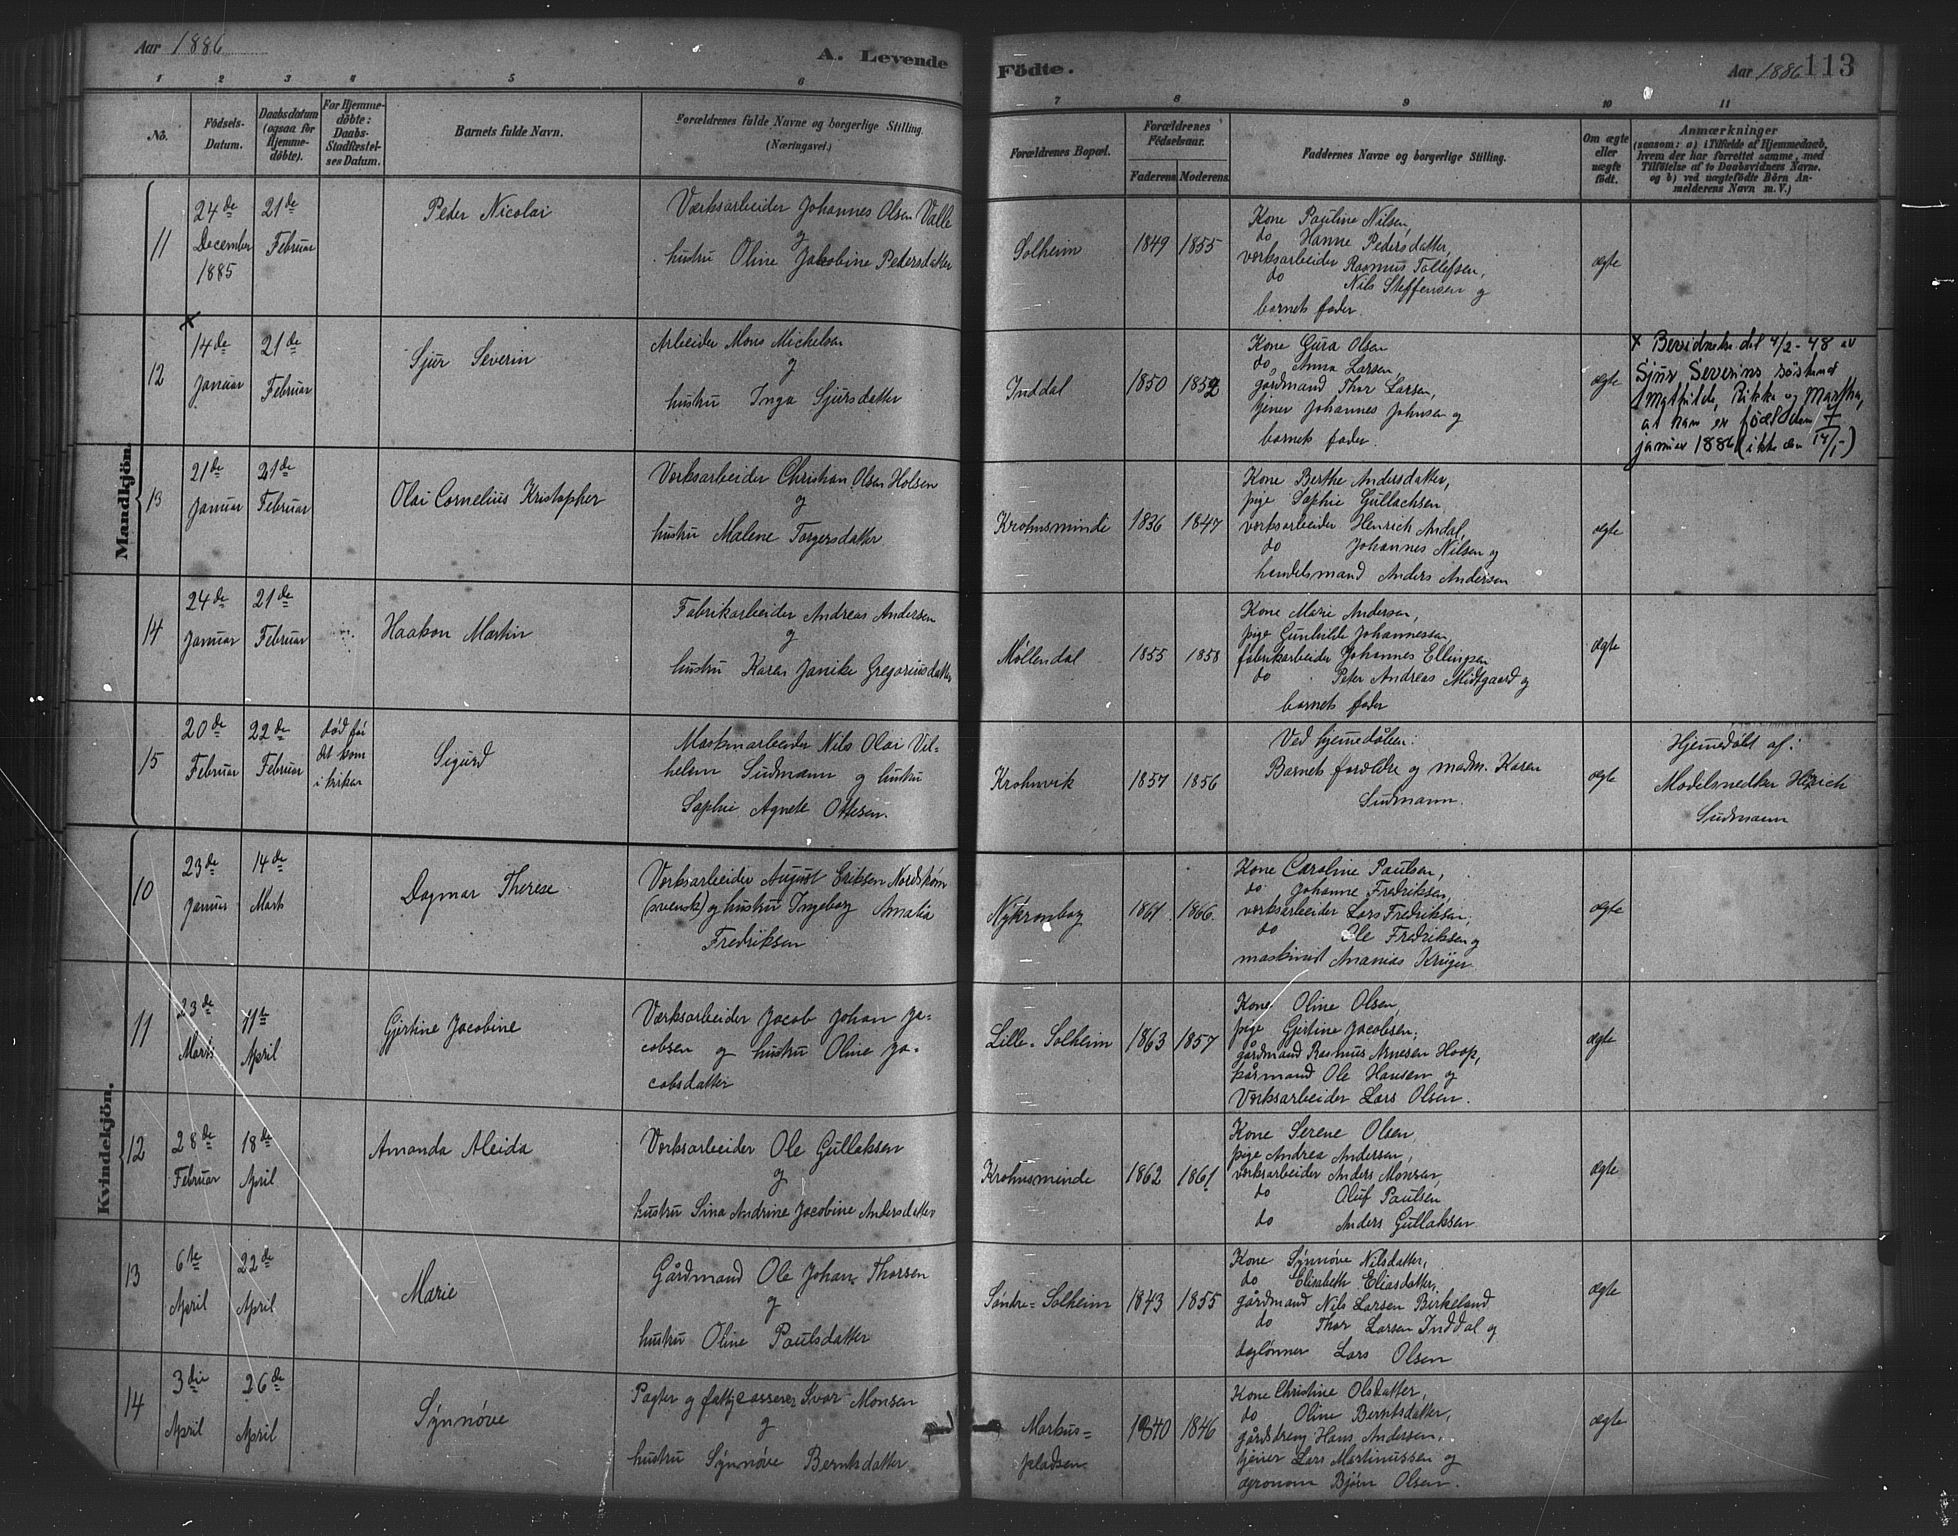 Aar 1886
A. Levende Födte.
Aar 1886
113
1 2 3 4 5 6 7 8 9 10 11
No.
Födsels-Datum.
Daabsdatum (ogsaa for Hjemmedöbte).
For Hjemmedöbte: Daabs-Stadfæstelses Datum.
Barnets fulde Navn.
Forældrenes fulde Navne og borgerlige Stilling. (Næringsvei.)
Forældrenes Bopæl.
Forældrenes Födselsaar.
Faderens Moderens
Faddernes Navne og borgerlige Stilling.
Om ægte eller uægte födt.
Anmærkninger
(saasom: a) i Tilfælde af Hjemmedaab,
hvem der har forrettet samme, med
Tilföielse af to Daabsvidners Navne.
og b) ved uægtefödte Börn An-
melderens Navn m. V.)
Mandkjön.
11
24de December 1885
21de Februar
Peder Nicolai
Værksarbeider Johannes Olsen Valle
og
hustru Oline Jakobine Pedersdatter
Solheim
1849
1855
Kone Pauline Nilsen,
do Hanne Pedersdatter,
værksarbeider Rasmus Tollefsen,
do Nils Steffensen og
barnets fader.
ægte
12
x
14de Januar
21de Februar
Sjur Severin
Arbeider Mons Michelsen
og
hustru Inga Sjursdatter
Inddal
1850
1852
Kone Gura Olsen
do, Anna Larsen,
gårdmand Thor Larsen,
tjener Johannes Johnsen og
barnets fader.
ægte
x Bevidnelse del 4/2-48 av
Sjur Severins söskend
Mathilde, Rikka og Martha,
at han er född den 7
januar 1886 (ikke den 14/1)
13
21de Januar
21de Februar
Olai Cornelius Kristopher
Værksarbeider Christian Olsen Holsen
og
hustru Malene Torgersdatter
Krohnsminde
1836
1847
Kone Berthe Andersdatter,
pige Sophie Gullachsen,
værksarbeider Henrich Andal,
do Johannes Nilsen og
handelsmand Anders Andersen
ægte
14
24de Januar
21de Februar
Haakon Martin
Fabrikarbeider Andreas Andersen
og
hustru Karen Janike Gregoriusdatter
Möllendal
1855
1858
Kone Marie Andersen,
pige Gunhilde Johannessen,
fabrikarbeider Johannes Ellingsen
do Peter Andreas Midtgaard og
barnets fader
ægte
15
20de Februar
22de Februar
död för
det kom
i kirken
Sigurd
Maskinarbeider Nils Olai Vil-
helm Sudmann og hustru
Sophie Agnete Ottesen.
Krohnvik
1857
1856
Ved hjemedåben:
Barnets forældre og madm. Karen
Sudmann.
ægte
Hjemedöbt af:
Modelsnedker Hinrich
Sudmann
Kvindekjön.
10
23de Januar
14de Marts
Dagmar Therese
Værksarbeider August Eriksen Nordström
(svensk) og hustru Ingeborg Amalia
Fredriksen
Nykronborg
1861
1866
Kone Caroline Paulsen,
do Johanne Fredriksen,
værksarbeider Lars Fredriksen,
do Ole Fredriksen og
maskinist Ananias Krüger
ægte
11
23de Marts
11te April
Gjertine Jacobine
Værksarbeider Jacob Johan Ja-
cobsen og hustru Oline Ja-
cobsdatter
Lille-Solheim
1863
1857
Kone Oline Olsen,
pige Gjertine Jacobsen,
gårdmand Rasmus Arnesen Hoop,
kårmand Ole Hansen og
Værksarbeider Lars Olsen.
ægte
12
28de Februar
18de April
Amanda Aleida
Værksarbeider Ole Gullaksen
og
hustru Sina Andrine Jacobine Andersdatter
Krohnsminde
1862
1861
Kone Serene Olsen,
pige Andrea Andersen,
værksarbeider Anders Monsen,
do Oluf Paulsen
do Anders Gullaksen
ægte
13
6te April
22de April
Marie
Gårdmand Ole Johan Thorsen
og
hustru Oline Paulsdatter
Söndre-Solheim
1843
1855
Kone Synnöve Nilsdatter,
do Elisabeth Eliasdatter,
gårdmand Nils Larsen Birkeland
do Thor Larsen Inddal og
daglönner Lars Olsen
ægte
14
3die April
26de April
Synnöve
Pagter og fattigcasserer Ivar Monsen
og
hustru Synnöve Berntsdatter
Markus-
pladsen
1840
1846
Kone Christine Olsdatter,
do Oline Berntsdatter,
gårdsdreng Hans Andersen,
tjener Lars Martinussen og
agronom Björn Olsen.
ægte